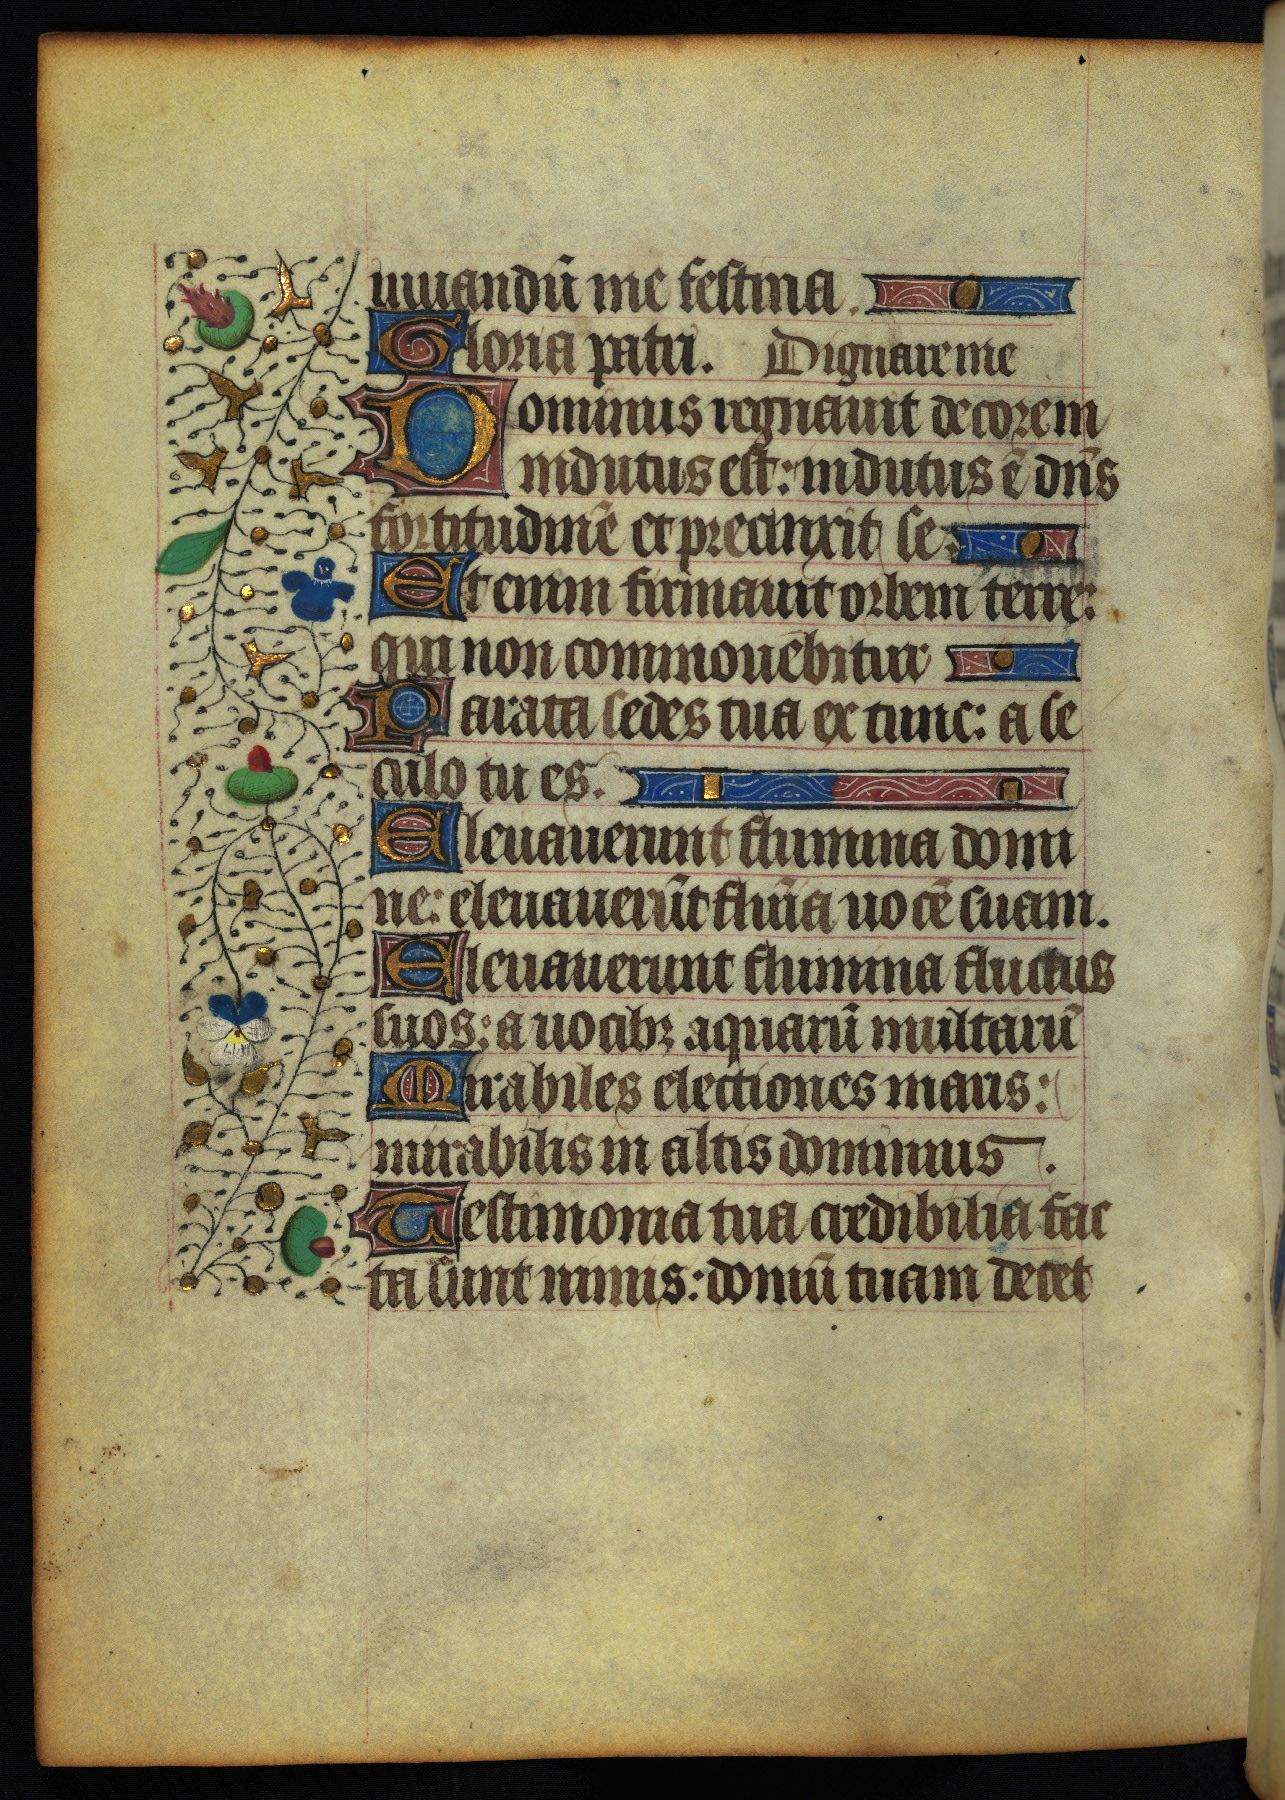 iuuandū me festina.
Gloria patri. Dignare me
Dominus regnauit decorem
indutus est: indutus ē dn̄s
fortitudinē et precinxit se.
Etenim firmauit orbem terre:
qui non commouebitur
Parata sedes tua ex tunc: a se
culo tu es.
Eleuauerunt flumina domi
ne: eleuauerūt flūīa uocē suam.
Eleuauerunt flumina fluctus
suos: a uocibꝫ aquarū multarū
Mirabiles electiones maris:
mirabilis in altis dominus.
Testimonia tua credibilia fac
ta sunt nimis: domū tuam decet